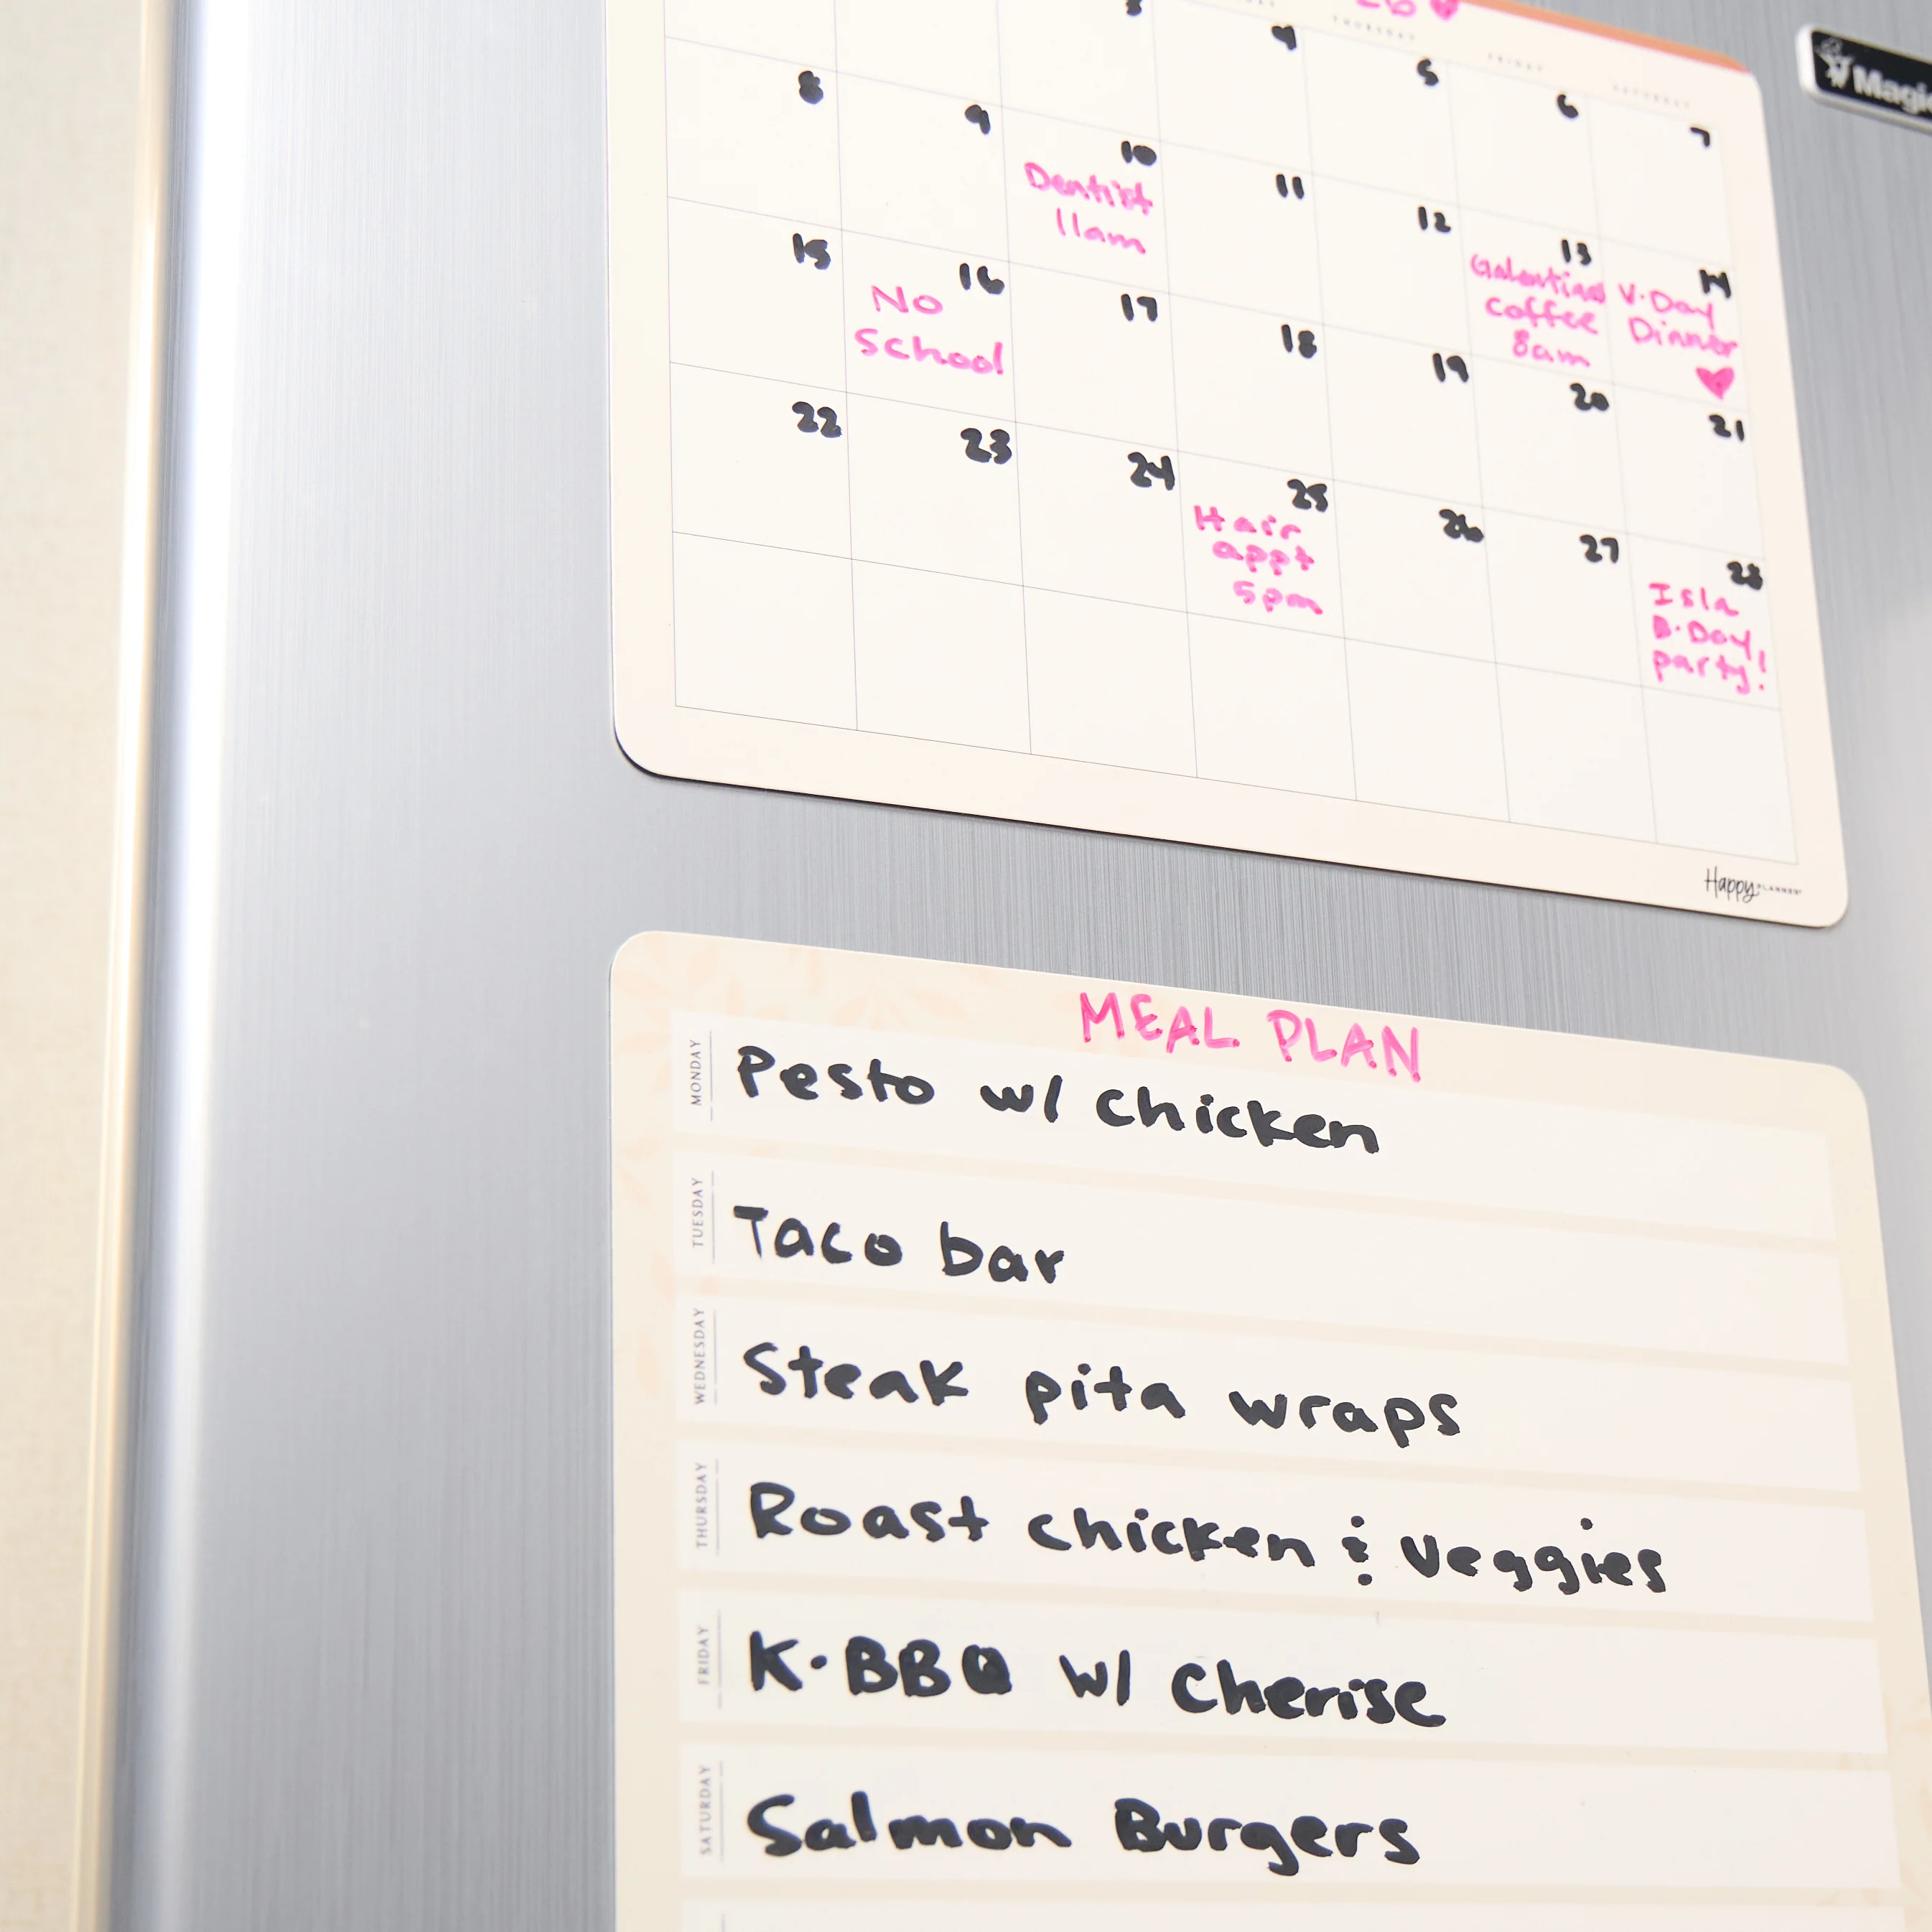 26
THURSDAY
FRIDAY
SATURDAY
3
4
5
6
7
8
9
10
Dentist
11am
11
12
13
Galentines
coffee
8am
14
V-Day
Dinner
15
16
No
School
17
18
19
20
21
22
23
24
25
Hair
appt
5pm
26
27
28
Isla
B-Day
party!
Happy PLANNER
Magic
MEAL PLAN
MONDAY
Pesto w/ chicken
TUESDAY
Taco bar
WEDNESDAY
Steak pita wraps
THURSDAY
Roast chicken & veggies
FRIDAY
K-BBQ w/ Cherise
SATURDAY
Salmon Burgers